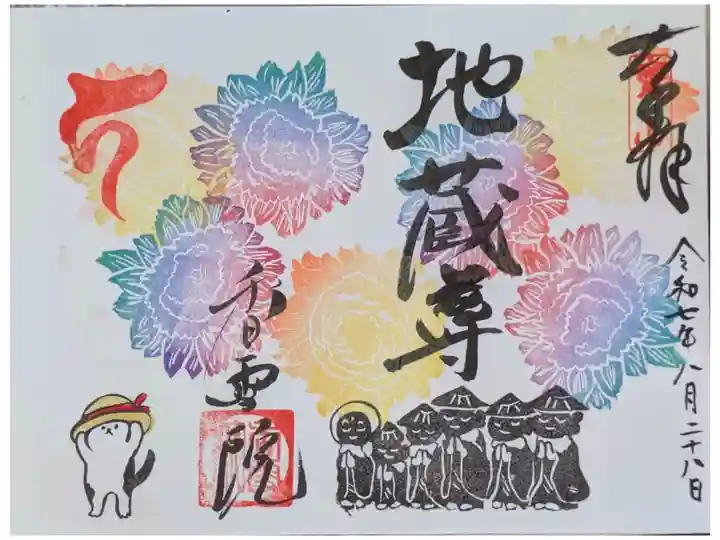 奉拝
令和七年八月二十八日
地蔵尊
香雪院